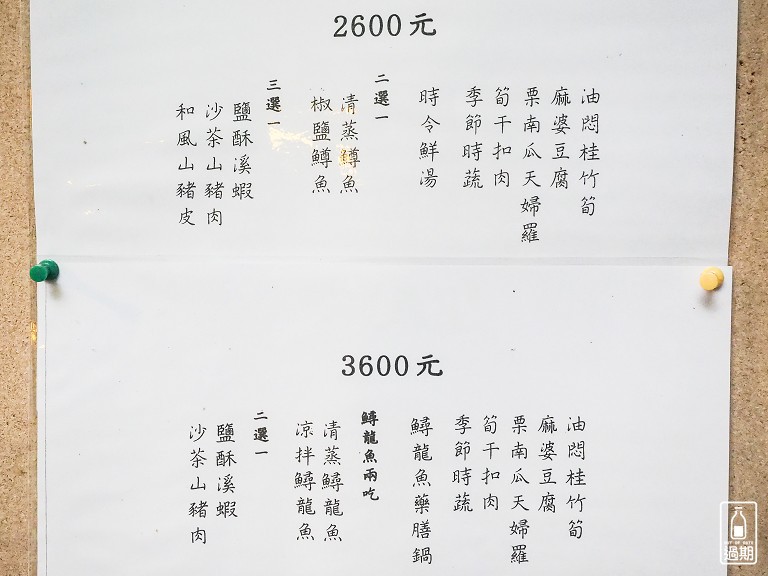 2600元
油悶桂竹筍
麻婆豆腐
栗南瓜天婦羅
筍干扣肉
季節時蔬
時令鮮湯
二選一
清蒸鱒魚
椒鹽鱒魚
三選一
鹽酥溪蝦
沙茶山豬肉
和風山豬皮
3600元
油悶桂竹筍
麻婆豆腐
栗南瓜天婦羅
筍干扣肉
季節時蔬
鱘龍魚藥膳鍋
鱘龍魚兩吃
清蒸鱘龍魚
涼拌鱘龍魚
二選一
鹽酥溪蝦
沙茶山豬肉
OUT OF DATE
過期